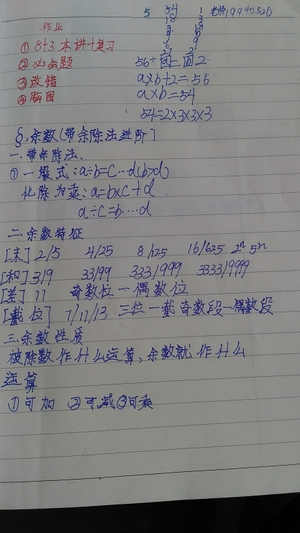 作业
① 8+3本讲+复习
② 必会题
③ 改错
④ 脑图
5
54 1
18 3
9 6
56÷□=□2
a×b+2=56
a×b=54
54=2×3×3×3
§.余数[带余除法进阶]
一.带余除法.
① 一爆式:a÷b=c…d(b>d)
化除为乘:a=b×c+d
a÷c=b…d
二.余数特征
[末] 2/5 4/25 8/125 16/625 2ⁿ 5ⁿ
[和] 3/9 33/99 333/999 3333/9999
[差] 11 奇数位-偶数位
[截位] 7/11/13 三位一截奇数段-偶数段
三.余数性质
被除数作什么运算,余数就作什么
运算
①可加 ②可减③可乘